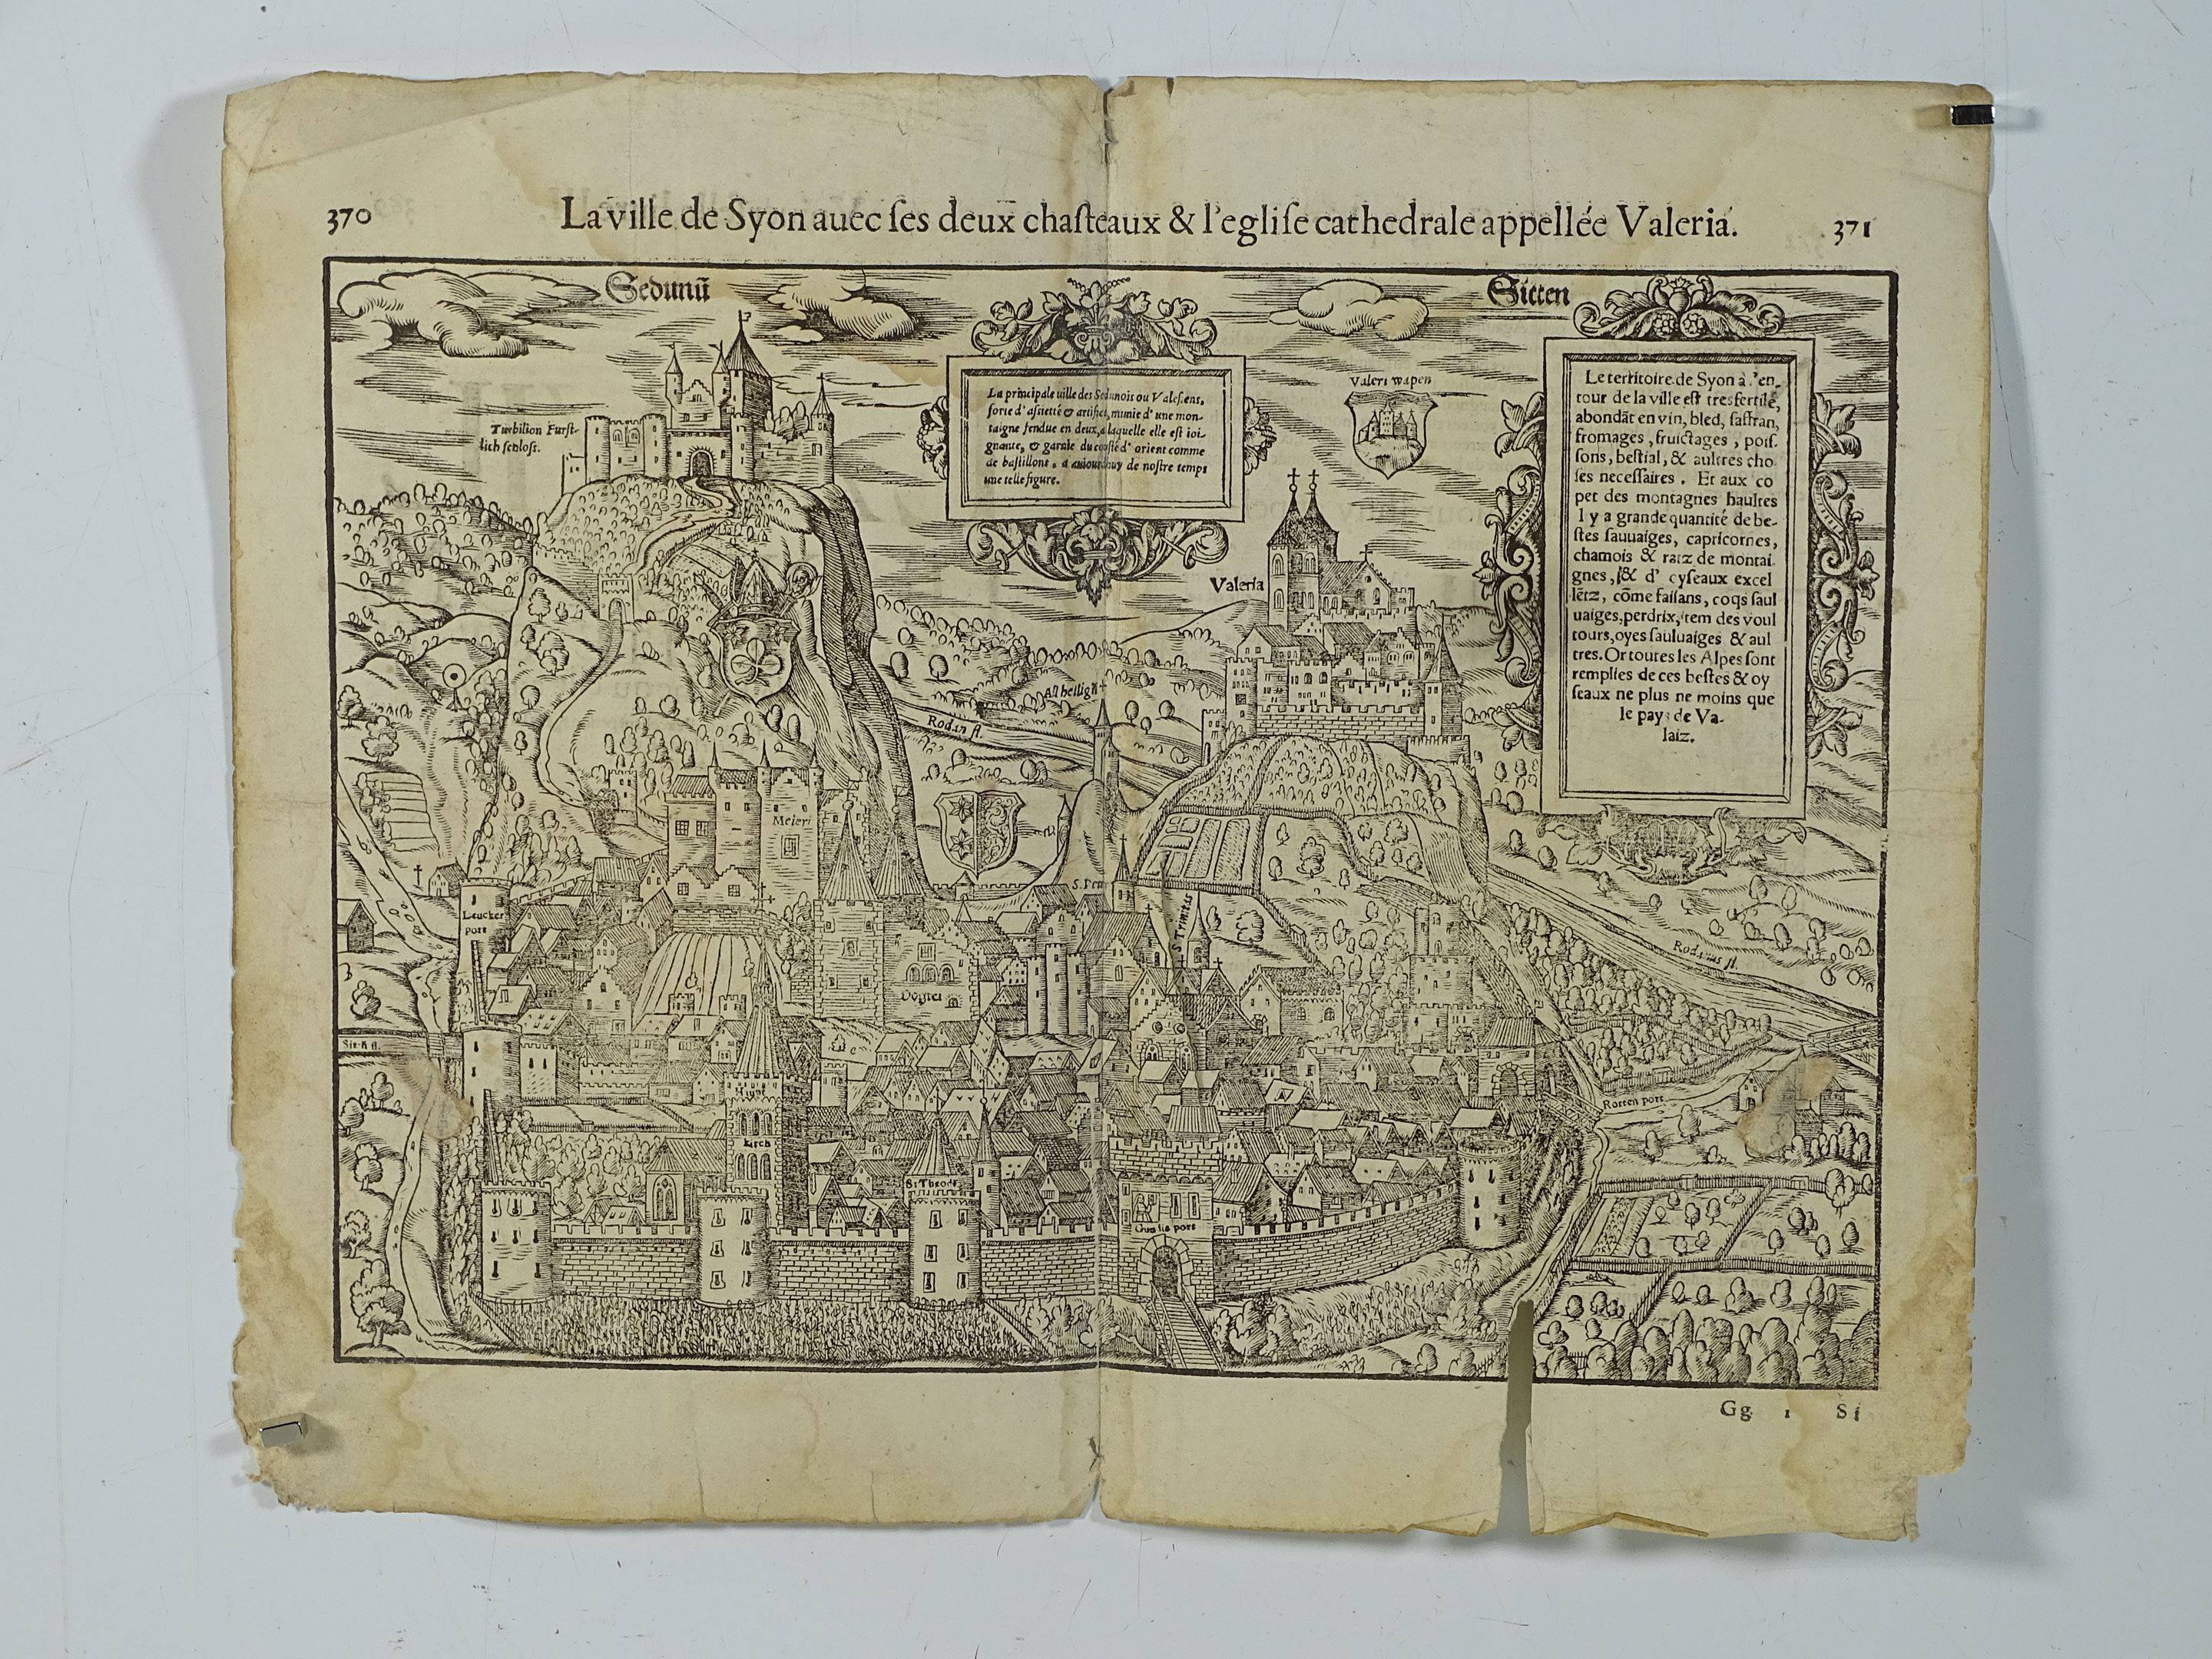 370
La ville de Syon auec ſes deux chaſteaux & l'egliſe cathedrale appellée Valeria.
371
Sedunū
Sitten
La principale uille des Sedunois ou Valeſiens,
forte d'aſsiette & artifice, munie d'une mon-
taigne fendue en deux, a laquelle elle est ioi-
gnante, & garnie du coſté d'orient comme
de baſtillons, a auiourdhuy de noſtre temps
une telle figure.
Valeri wapen
Le territoire de Syon à l'en-
tour de la ville eſt tresfertile,
abondāt en vin, bled, ſaffran,
fromages, fruictages, poiſ-
ſons, beſtial, & aultres cho
ſes neceſſaires. Et aux co
pet des montagnes haultes
l y a grande quantité de be-
ſtes ſauuaiges, capricornes,
chamois & ratz de montai
gnes, & d'oyſeaux excel
lētz, cōme faiſans, coqs ſaul
uaiges, perdrix, item des voul
tours, oyes ſauluaiges & aul
tres. Or toutes les Alpes ſont
remplies de ces beſtes & oy
ſeaux ne plus ne moins que
le pays de Va-
laiz.
Turbilion Furſt-
lich ſchloſs.
Valeria
Alheilig
Rodan fl.
Meieri
Leucker
port
S. Trinitas
Rodanus fl.
Sitta fl.
Rotten port
kirch
S. Theodl
port
Gg 1 Si